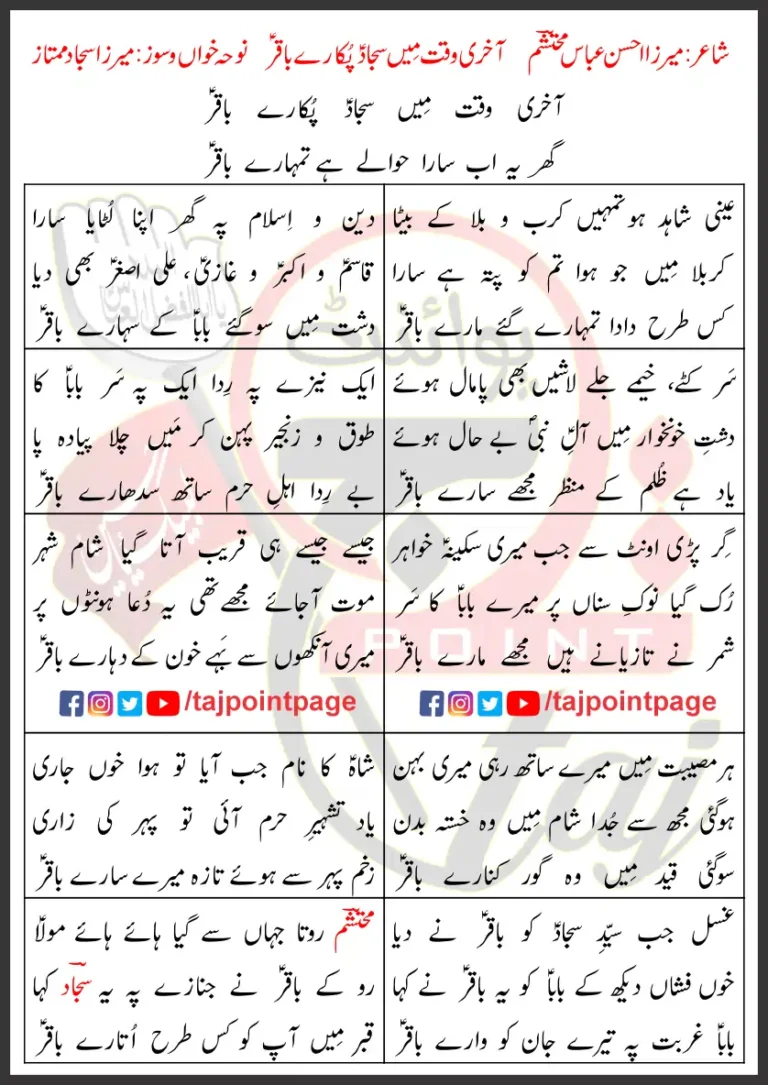 شاعر: میرزا احسن عباس محتشمؔ آخری وقت مِیں سجادؑ پُکارے باقرؑ نوحہ خواں و سوز: میرزا سجاد ممتاز
آخری وقت مِیں سجادؑ پُکارے باقرؑ
گھر یہ اب سارا حوالے ہے تمہارے باقرؑ
عینی شاہد ہو تمہیں کرب و بلا کے بیٹا
کربلا مِیں جو ہوا تم کو پتہ ہے سارا
کس طرح دادا تمہارے گئے مارے باقرؑ
دین و اِسلام پہ گھر اپنا لُٹایا سارا
قاسمؑ و اکبرؑ و غازیؑ، علی اصغرؑ بھی دیا
دشت مِیں سوگئے باباؑ کے سہارے باقرؑ
سَر کٹے، خیمے جلے لاشیں بھی پامال ہوئے
دشتِ خونخوار مِیں آلِ نبیؐ بے حال ہوئے
یاد ہے ظُلم کے منظر مجھے سارے باقرؑ
ایک نیزے پہ رِدا ایک پہ سَر باباؑ کا
طوق و زنجیر پہن کر مَیں چلا پیادہ پا
بے رِدا اہلِ حرم ساتھ سدھارے باقرؑ
گِر پڑی اونٹ سے جب میری سکینہؑ خواہر
رُک گیا نوکِ سناں پر میرے باباؑ کا سَر
شمر نے تازیانے ہیں مجھے مارے باقرؑ
/tajpointpage
جیسے جیسے ہی قریب آتا گیا شام شہر
موت آجائے مجھے تھی یہ دُعا ہونٹوں پر
میری آنکھوں سے بَہے خون کے دہارے باقرؑ
/tajpointpage
ہر مصیبت مِیں میرے ساتھ رہی میری بہن
ہوگئی مجھ سے جُدا شام مِیں وہ خستہ بدن
سوگئی قید مِیں وہ گور کنارے باقرؑ
شاہؑ کا نام جب آیا تو ہوا خوں جاری
یاد تشہیرِ حرم آئی تو پہر کی زاری
زخم پہر سے ہوئے تازہ میرے سارے باقرؑ
غسل جب سیّدِ سجادؑ کو باقرؑ نے دیا
خوں فشاں دیکھ کے باباؑ کو یہ باقرؑ نے کہا
باباؑ غربت پہ تیرے جان کو وارے باقرؑ
محتشمؔ روتا جہاں سے گیا ہائے ہائے مولاؑ
رو کے باقرؑ نے جنازے پہ یہ سجادؔ کہا
قبر مِیں آپ کو کس طرح اُتارے باقرؑ
پوائنٹ
POINT
taj